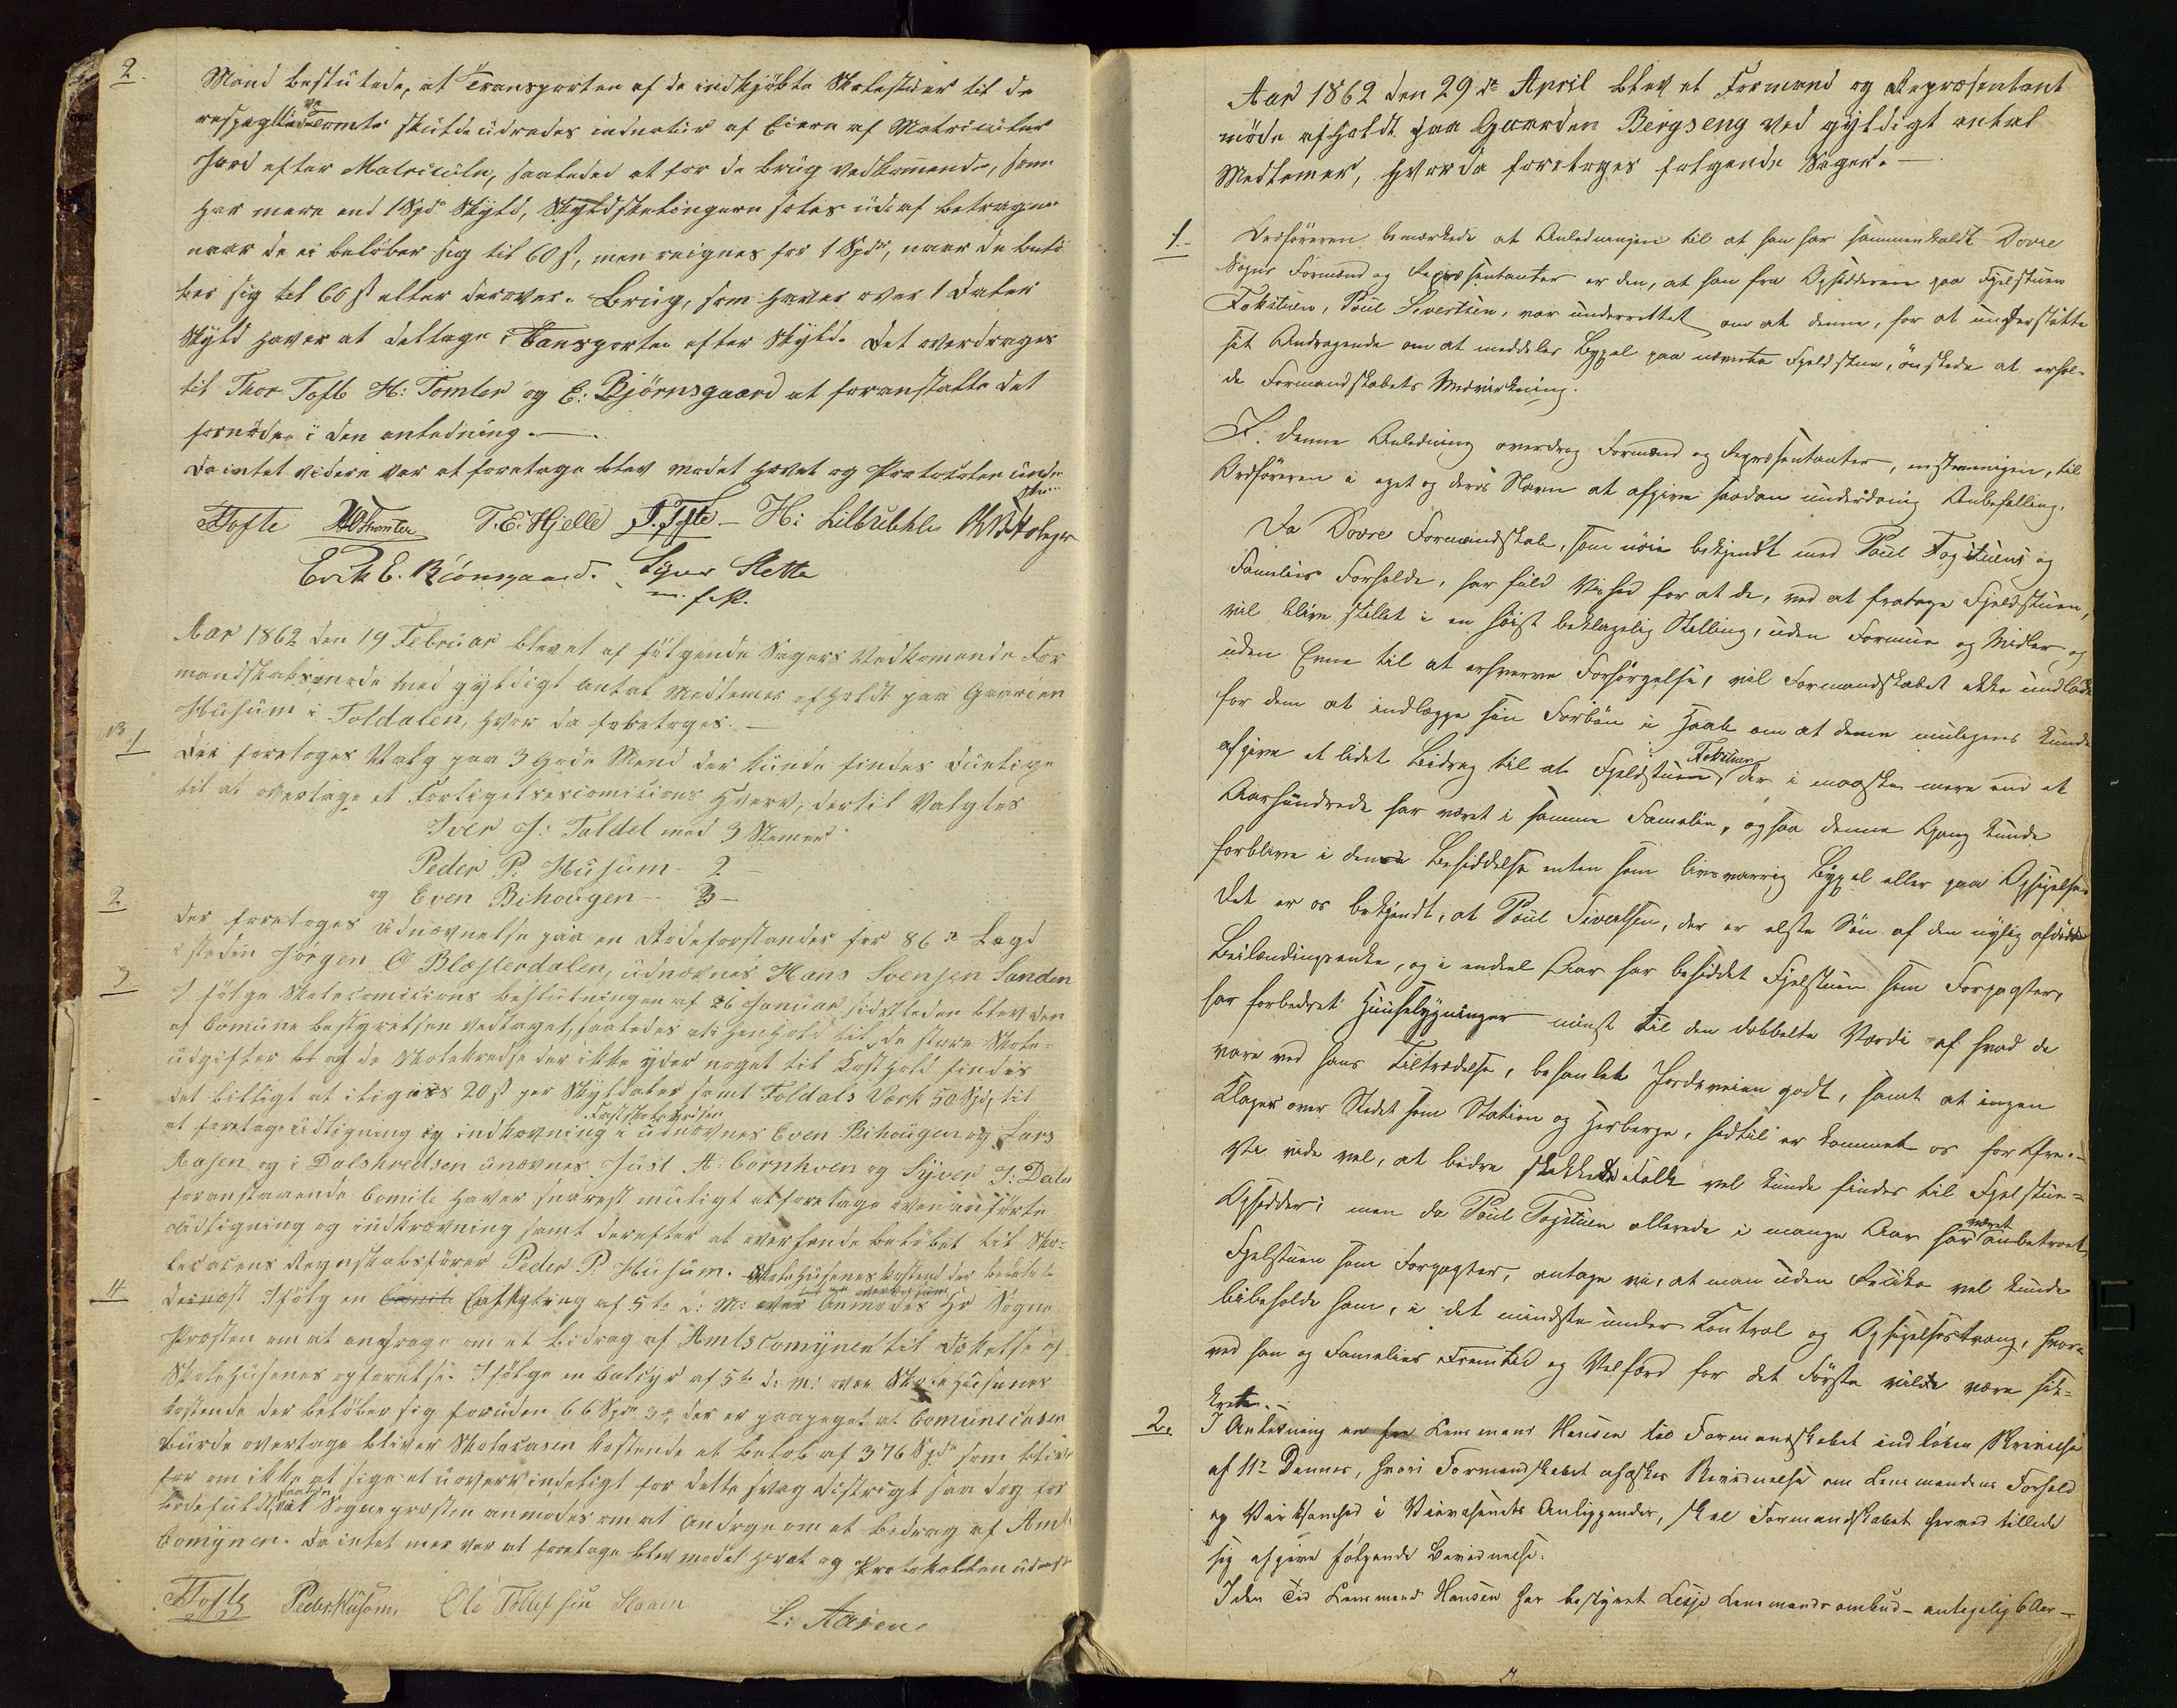 2.
Mand besluttede, at Transporten af de indkjöbte Skolestuer til de
respektive Tomte skulde udredes in natur af Eiere af Matriculer
Jord efter Matriculen, saaledes at for de brug vedkomende, som
har mere end 1 Spd. Skyld, Skyldskilingerne sættes ud af betragn
naar de ei belöber sig til 60 ß, men reignes for 1 Spd, naar de belö
ber sig til 60 ß eller derover. Brug, som haver over 1 Daler
Skyld haver at deltage i Transporten efter Skyld. Det overdrages
til Thor Tofte H: Tomter og E: Björnsgaard at foranstalte det
fornödne i den anledning.
Da intet videre var at foretage blev mødet hævet og Protokolen under
skrevet
Tofte T. E. Hjelle T. Tofte H:
Erik E. Biönsgaard. Siver Slette
m. f. P.
Aar 1862 den 19 Februar blev et af fölgende Sagers Vedkomende For
mandskabsmøde med gyldigt antal Medlemer afholdt paa Gaarden
Husum i Foldalen, hvor da foretoges.
No. 1
Der foretoges Valg paa 3 gode Mend der kunde findes duelige
til at overtage et Forligelsescomisions Hverv, dertil Valgtes
Iver J: Foldal med 3 Stemer
Peder P. Husum - 2 -
og Even Bihougen - 3 -
2
der foretoges udnævnelse paa en Rodeforstander for 86 de Lægd
isteden Jörgen O Blæsterdalen, udnævnes Hans Svensen Sanden
3
I fölge Skolecomisions beslutningen af 26 Januar sidstleden blev den
af Comune bestyrelsen vedtaget, saaledes at i Henhold til de store Skole=
udgifter og at de Skolekredse der ikke yder noget til Kosthold findes
det billigt at ilignes 20 ß per Skyldaler samt Foldals Værk 50 Spd, til
Fastskolekredsen
at foretage udligning og indkrævning i udnævnes Even Bihougen og Lars
Aasen og i Dalskredsen unævnes Just A: Cornhoen og Syver J: Dalen
foranstaaende Comite haver snarest muligt at foretage ovenanförte
udligning og indkrævning samt derefter at oversende belöbet til Sko=
lecasens Regnskabsförer Peder P. Husum.
4
dernæst Ifölg en Comite Calkylering af 5te d: M: over Anmodes Hr Sogne
Præsten om at andrage om et bidrag af Amtscomynen til
Skolehusenes opförelse. Ifölge en Calcyl af 5te d: M: over Skole Husenes
kostende der belöber sig foruden 66 Spd der er paapeget at Comunecasen
burde overtage bliver Skolecasen kostende et belöb af 376 Spd som bliver
for om ikke at sige et uoverv indeligt for dette svag distrigt saa dog for
saaledes
bödefuldt, at Sognepræsten anmodes om at andrge om et bidrag af Amts
Comynen. Da intet mer var at foretage blev mødet hævet og Protokollen underskr
Tofte Peder Husom, Ole Tollefsen Sloen
L: Aasen
Aar 1862 den 29 de April blev et Formand og Repræsentant
möde afholdt paa Gaarden Bergseng ved gyldigt antal
Medlemer, hvor da foretoges folgende Sager. —
1.
Ordföreren bemærkede at Anledningen til at han har sammenkaldt Dovre
Sogns Formænd og Repræsentanter er den, at han fra Opsidderen paa Fjelstuen
Fokstuen, Poul Sivertsen, var underrettet om at denne, for at understötte
sit Andragende om at meddeles Bygsel paa nævnte Fjeldstue, önskede at erhol=
de Formandskabets Medvirkning.
I denne Anledning overdrog Formænd og Repræsentanter, enstemmigen, til
Ordföreren i eget og deres Navn at afgive saadan underdanig Anbefalling.
Da Dovre Formandskab, som nöie bekjendt med Poul Fogstuens og
Families Forholde, har fuld Vished for at de, ved at fratage Fjeldstuen,
vil blive stillet i en höist beklagelig Stilling, uden Formue og Midler, og
uden Evne til at erhverve Forsörgelse, vil Formandskabet ikke undlade
for dem at indlægge sin Forbön i Haab om at denne muligens kunde
afgive et lidet Bidrag til at Fjeldstuen Fokstuen, der i maaske mere end et
Aarhundrede har været i samme Familie, ogsaa denne Gang kunde
forblive i dens Besiddelse enten som livsvarrig Bygsel eller paa Opsigelse.
Det er os bekjendt, at Poul Sivertsen, der er elste Sön af den nylig afdöde
Beilændingsenke, og i endeel Aar har besiddet Fjelstuen som Forpagter,
har forbedret Huusebygninger minst til den dobbelte Værdi af hvad de
vare ved hans Tiltrædelse, behandlet Jordeveien godt, samt at ingen
Klager over Stedet som Station og Herberge, hidtil er kommet os for Öre.
Vi vide vel, at bedre skikkede Folk vel kunde findes til Fjelstue=
Opsidder; men da Poul Fogstuen allerede i mange Aar har været anbetroet
Fjelstuen som Forpagter, antage vi, at man uden Risiko vel kunde
bibeholde ham, i det mindste under Control og Opsigelsestvang, hvor=
ved han og Families Fremtid og Velfærd for det Förste vilde være sik=
kret.
2.
I Anledning en fra Lensmand Hansen til Formandskabet indlöben Skrivelse
af 11te Dennes, hvori Formandskabet afæskes Beviidnelse om Lensmandens Forhold
og Virksomhed i Veivæsenets Anliggender, skal Formandskabet herved tillade
sig afgive følgende Bevidnelse.
I den Tid Lensmand Hansen har bestyret Lesje Lensmandsombud - antagelig 6 Aar -